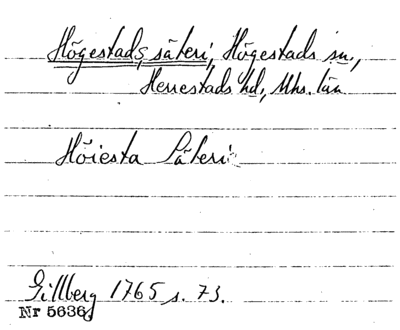 Högestads säteri, Högestads sn.,
Herrestads hd, Mhs. län
Höiesta Säteri
Gillberg 1765 s. 73.
Nr 5636